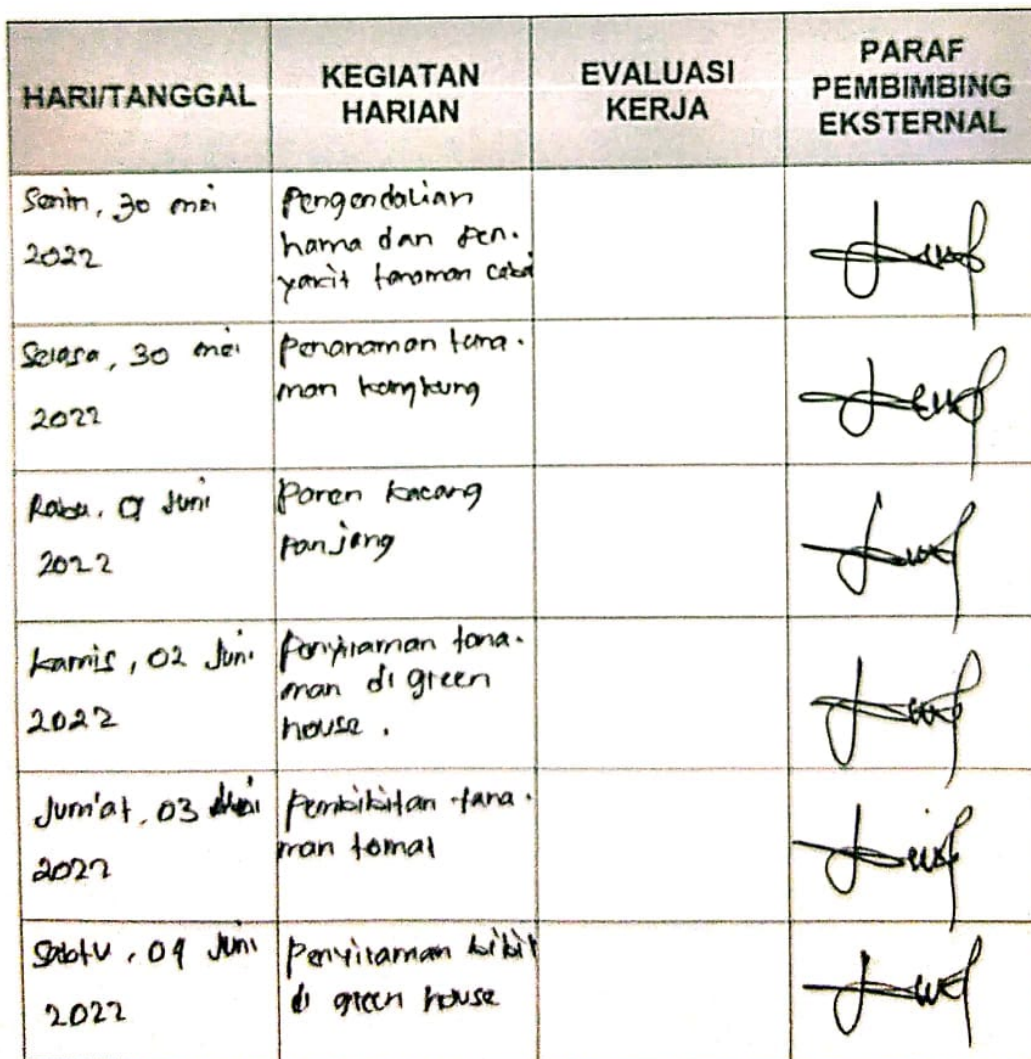 HARI/TANGGAL
KEGIATAN
HARIAN
EVALUASI
KERJA
PARAF
PEMBIMBING
EKSTERNAL
Senin, 30 mei
2022
Pengendalian
hama dan Pen-
yakit tanaman cabai
Selasa, 30 mei
2022
Penanaman tana-
man kangkung
Rabu, 01 Juni
2022
Panen kacang
panjang
Kamis, 02 Juni
2022
Penyiraman tana-
man di green
house.
Jum'at, 03 Juni
2022
Pembibitan tana-
man tomat
Sabtu, 04 Juni
2022
Penyiraman bibit
di green house